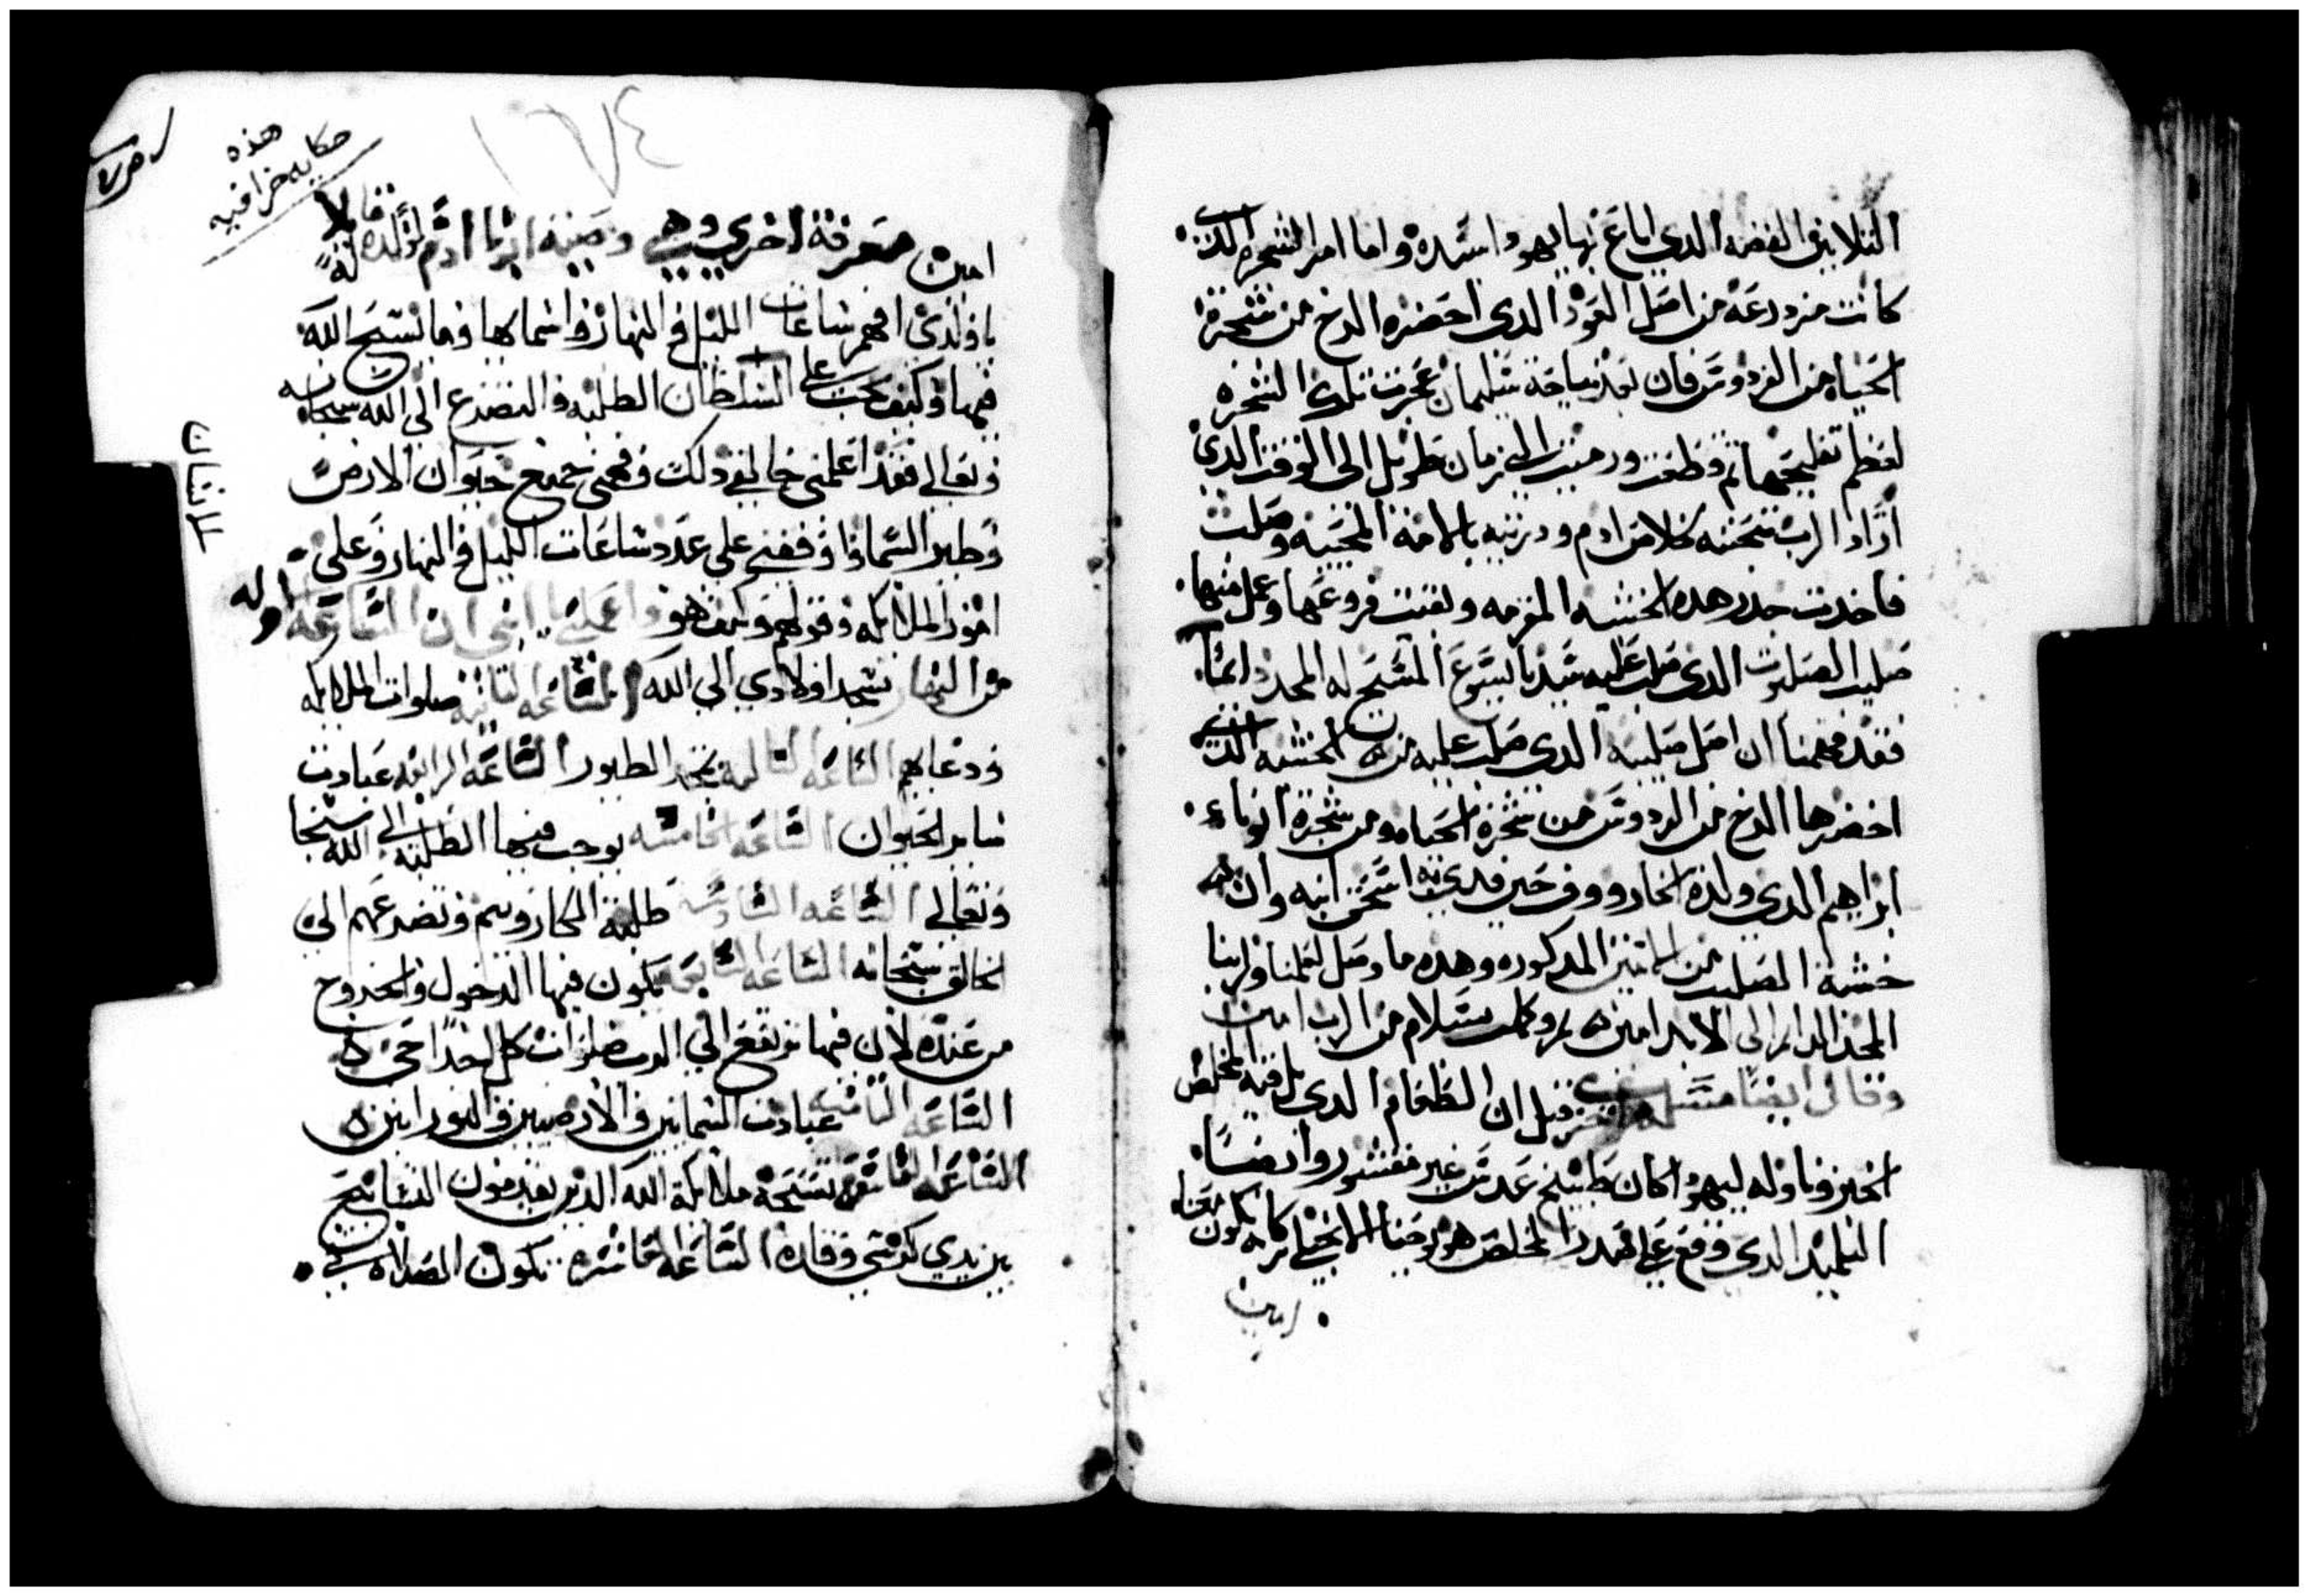 التلاتين الفضه الدي اباع بها يهودا سيده واما امر الشجره الدي
كانت مزدرعه من اصل العود الدي احضره الرخ من شجرة
الحياه من الفردوس فان بعد نياحة سليمان عجزت تلك الشجره
لعظم تفليحها تم وقطعت ورميت الي زمان طويل الى الوقت الدي
اراد الرب بتحننه خلاص ادم ودريته بالامه المحييه وصلب
فاخدت جدر هده الخشبه المفرمه وبقيت فروعها وعمل منها
صليب الصلبوت الدي صلب عليه سيدنا يسوع المسيح له المجد دايما
فقد فهمنا ان اصل صليبه الدي صلب عليه من الخشبه الدي
احضرها الرخ من الفردوس من شجرة الحياه ومن شجرة ابونا
ابراهيم الدي ولده الخاروف في حين فدي به اسحق ابنه وان
خشبة الصليب من الاتنين المدكوره وهده ما وصل لعلمنا ولربنا
المجد الدايم الى الابد امين وكل سلام من الرب امين
وقال ايضا قيل ان الطعام الدي بل فيه المخلص
الخبز وناوله ليهودا كان طبيخ عدس غير مقشور وايضا
التلميد الدي وقع علي صدر المخلص هو يوحنا الانجيلي يكون معنا
امين
١٦٧٤
هذه
حكايه خرافيه
امين معرفة اخري وهي وصية ابينا ادم لولده قايلا له
يا ولدي افهم ساعات الليل والنهار واسماها وما يسبح الله
فيها وكيف يجب علي الطلبه والتضرع الي الله سبحانه
وتعالى فقد اعلمني خالقي دلك وفهمني جميع حيوان الارض
وطير السما واوقفني علي عدد ساعات الليل والنهار وعلي
امور الملايكه وقولهم وكيف هو واعلم يا ابني ان الساعه اوله
من النهار تسجد اولادي الي الله الساعه التانيه صلوات الملايكه
ودعايهم الساعه التالته تمجد الطيور الساعه الرابعه عبادت
ساير الحيوان الساعه الخامسه يوجب فيها الطلبه الى الله سبحا
وتعالي الساعه السادسه طلبة الكاروبيم وتضرعهم الي
الخالق سبحانه الساعه السابعه يكون فيها الدخول والخروج
من عنده لان فيها ترتفع الي الرب صلوات كل احدا حي
الساعه التامنه عبادت السمايين والارضيين والنورانين
الساعه التاسعه تسبحة ملايكة الله الدين يقدمون التسابيح
بين يدي كرسي وقاره الساعه العاشره تكون الصلاه
للانسان